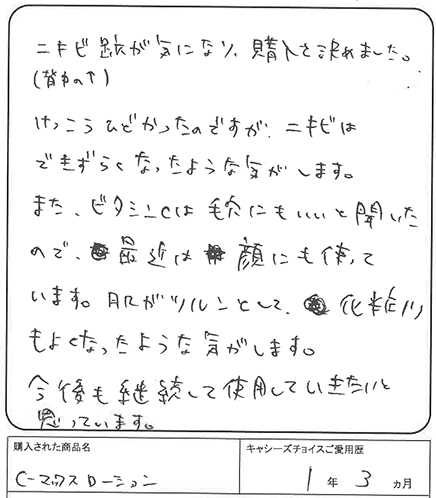 ニキビ跡が気になり、購入を決めました。
(背中の↑)
けっこうひどかったのですが、ニキビは
できずらくなったような気がします。
また、ビタミンCは毛穴にもいいと聞いた
ので、最近は顔にも使って
います。肌がツルンとして、化粧ノリ
もよくなったような気がします。
今後も継続して使用していきたいと
思っています。
購入された商品名
キャシーズチョイスご愛用歴
C-マックスローション
1年3ヵ月